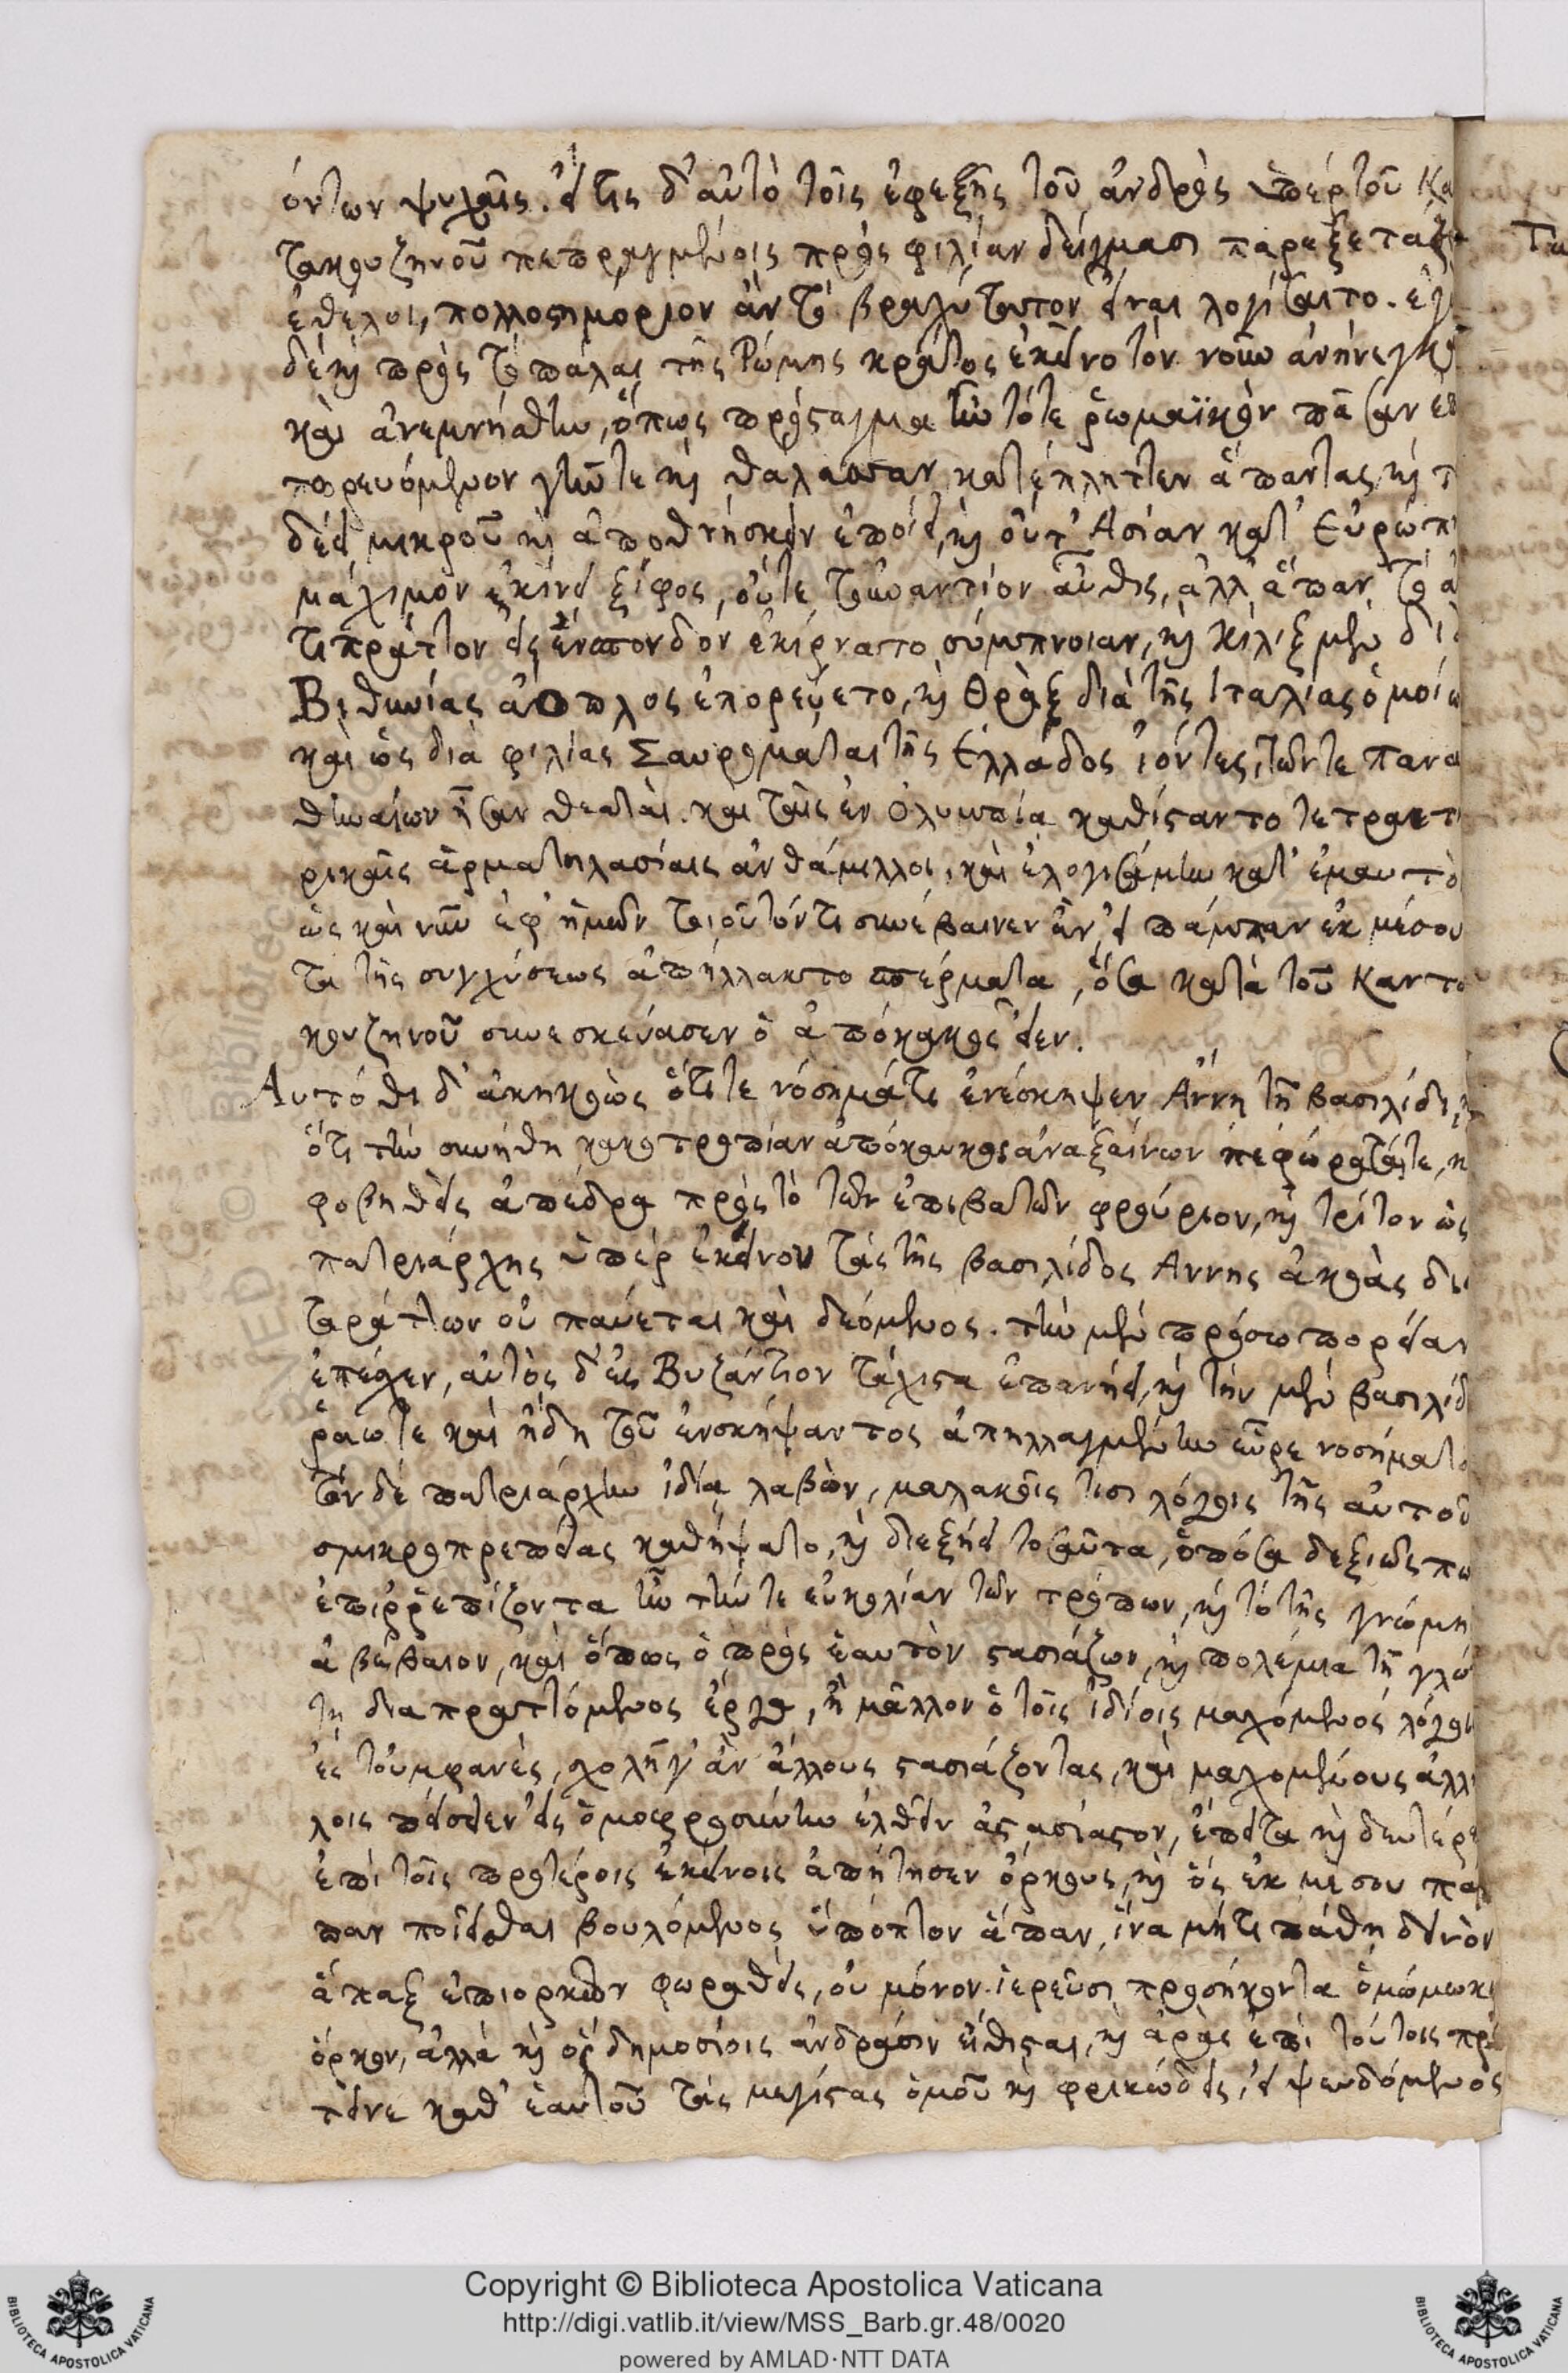 όντων ψυχαῖς. εἴ τις δ' αὐτὸ τοῖς ἐφεξῆς τοῦ ἀνδρὸς ὑπὲρ τοῦ Κα
τακουζηνοῦ πεπραγμένοις πρὸς φιλίαν δείγμασι παρεξετάζ
ἐθέλοι, πολλοστημόριον ἂν τὸ βραχύτατον εἶναι λογίσαιτο. ἐγὼ
δὲ καὶ πρὸς τὸ πάλαι τῆς Ρώμης κράτος ἐκεῖνο τὸν νοῦν ἀνήνεγκ
καὶ ἀνεμνήσθην, ὅπως πρόσταγμα ἓν τότε ῥωμαϊκὸν πᾶσαν ἐπ
πορευόμενον γῆν τε καὶ θάλασσαν κατέπληττεν ἅπαντας, καὶ τ
δέει μικροῦ καὶ ἀποθνήσκειν ἐποίει, καὶ οὔτ' Ἀσίαν κατ' Εὐρώπ
μάχιμον ἐκίνει ξίφος, οὔτε τοὐναντίον αὖθις, ἀλλ' ἅπαν τὸ ἀ
τιπράττον εἰς ἔνσπονδον ἐκίρνατο σύμπνοιαν, καὶ Κίλιξ μὲν διὰ
Βιθυνίας ἄοπλος ἐπορεύετο, καὶ Θρᾲξ διὰ τῆς Ιταλίας ὁμοίω
καὶ ὡς διὰ φιλίας Σαυρομάται τῆς Ἑλλάδος ἰόντες, τῶν τε Πανα
θηναίων ἦσαν θεαταί. καὶ ταῖς ἐν Ολυμπίᾳ καθίσταντο τετρακτ
ρικαῖς ἁρματηλασίαις ἀνθάμιλλοι, καὶ ἐλογισάμην κατ' ἐμαυτὸ
ὡς καὶ νῦν ἐφ' ἡμῶν τοιοῦτόν τι συνέβαινεν ἂν, εἰ πάμπαν ἐκ μέσου
τὰ τῆς συγχύσεως ἀπήλλακτο σπέρματα, ὅσα κατὰ τοῦ Καντα
κουζηνοῦ συνεσκεύασεν ὁ ἀπόκαυκος εἶδεν.
Αὐτόθι δ' ἀκηκοὼς ὅτι τε νόσημά τι ἐνέσκηψεν Ἄννῃ τῇ βασιλίδι, κ
ὅτι τὴν συνήθη κακοτροπίαν ἀπόκαυκος ἀναξαίνων πεφώραταί τε, κ
φοβηθεὶς ἀπέδρα πρὸς τὸ τῶν ἐπιβατῶν φρούριον, καὶ τρίτον ὡς
πατριάρχης ὑπὲρ ἐκείνου τὰς τῆς βασιλίδος Αννης ἀκοὰς δι
ταράττων οὐ παύεται καὶ δεόμενος. τὴν μὲν πρόσω πορείαν
ἐπέσχεν, αὐτὸς δ' ἐς Βυζάντιον τάχιστα ἐπανῄει, καὶ τὴν μὲν βασιλίδ
ῥᾴω τε καὶ ἤδη τοῦ ἐνσκήψαντος ἀπηλλαγμένην εὗρε νοσήματο
τὸν δὲ πατριάρχην ἰδίᾳ λαβὼν, μαλακοῖς τισι λόγοις τῆς αὐτοῦ
σμικροπρεπείας καθήψατο, καὶ διεξῄει τοσαῦτα, ὁπόσα δεξιῶς πω
ἐπιῤῥαπίζοντα ἦν τήν τε εὐκολίαν τῶν τρόπων, καὶ τὸ τῆς γνώμη
ἀβέβαιον, καὶ ὅπως ὁ πρὸς ἑαυτὸν στασιάζων, καὶ πολέμια τῇ γλώ
τῃ διαπραττόμενος ἔργα, ἢ μᾶλλον ὁ τοῖς ἰδίοις μαχόμενος λόγοι
ἐς τοὐμφανὲς, σχολῇ γ' ἂν ἄλλους στασιάζοντας, καὶ μαχομένους ἀλλή
λοις πείσειεν εἰς ὁμοφροσύνην ἐλθεῖν ἀστασίαστον, ἔπειτα καὶ δευτέρο
ἐπὶ τοῖς προτέροις ἐκείνοις ἀπῄτησεν ὅρκους, καὶ ὃς ἐκ μέσου πάμ
παν ποιεῖσθαι βουλόμενος ὕποπτον ἅπαν, ἵνα μή τι πάθῃ δεινὸν
ἅπαξ ἐπιορκῶν φωραθεὶς, οὐ μόνον ἱερεῦσι προσήκοντα ὀμώμοκε
ὅρκον, ἀλλὰ καὶ ὃν δημοσίοις ἀνδράσιν εἴθισται, καὶ ἀρὰς ἐπὶ τούτοις πρ
τεινε καθ' ἑαυτοῦ τὰς μεγίστας ὁμοῦ καὶ φρικώδεις, εἰ ψευδόμενος
Τα
Copyright © Biblioteca Apostolica Vaticana
http://digi.vatlib.it/view/MSS_Barb.gr.48/0020
powered by AMLAD·NTT DATA
BIBLIOTECA APOSTOLICA VATICANA
BIBLIOTECA APOSTOLICA VATICANA